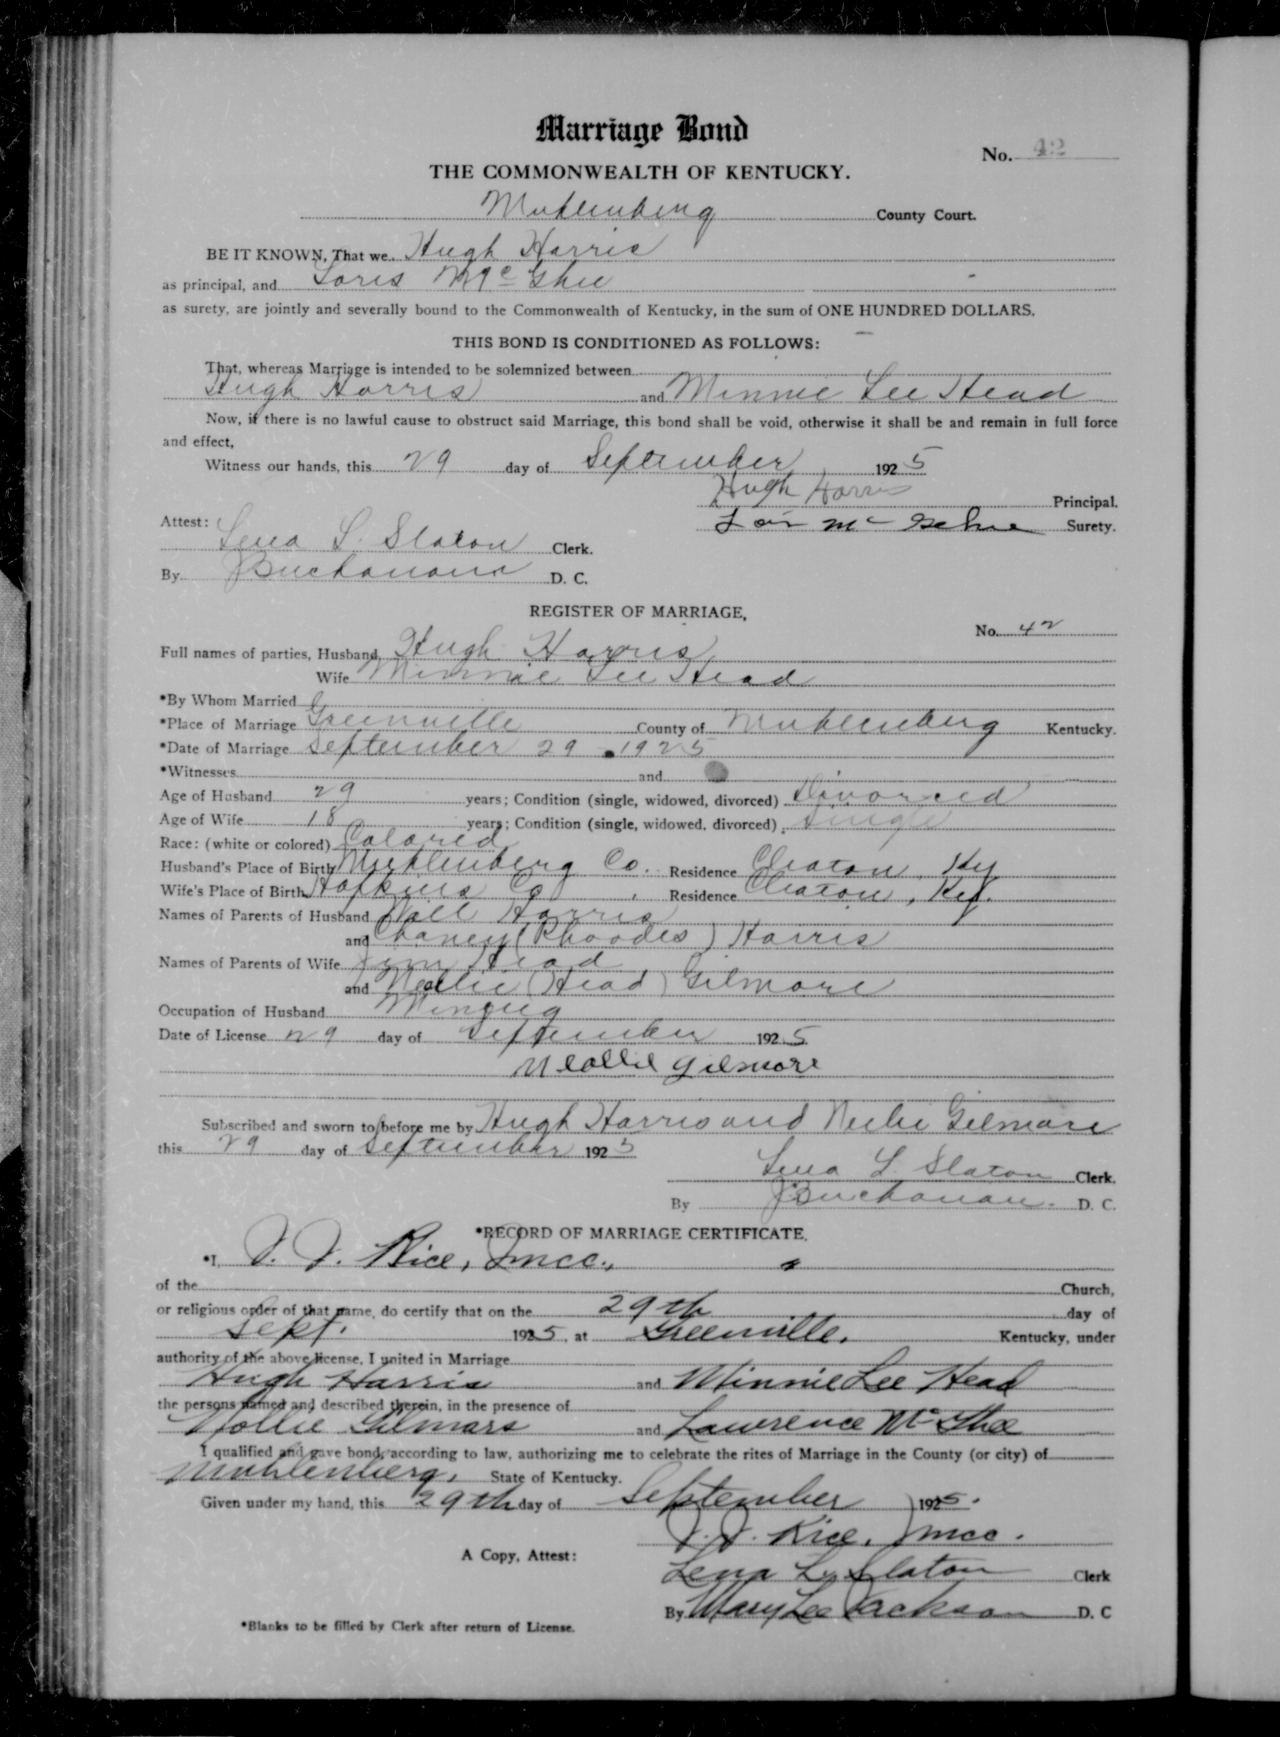 Marriage Bond
No. 42
THE COMMONWEALTH OF KENTUCKY.
Muhlenberg County Court.
BE IT KNOWN, That we Hugh Harris
as principal, and Loris McGhee
as surety, are jointly and severally bound to the Commonwealth of Kentucky, in the sum of ONE HUNDRED DOLLARS.
THIS BOND IS CONDITIONED AS FOLLOWS:
That, whereas Marriage is intended to be solemnized between
Hugh Harris and Minnie Lee Head
Now, if there is no lawful cause to obstruct said Marriage, this bond shall be void, otherwise it shall be and remain in full force
and effect,
Witness our hands, this 29 day of September 1925
Hugh Harris Principal.
Mc Gehee Surety.
Attest: Lena L. Slaton Clerk.
By Buchanan D. C.
REGISTER OF MARRIAGE,
No. 42
Full names of parties, Husband Hugh Harris
Wife Minnie Lee Head
*By Whom Married
*Place of Marriage Greenville County of Muhlenberg Kentucky.
*Date of Marriage September 29 1925
*Witnesses and
Age of Husband 29 years; Condition (single, widowed, divorced) Divorced
Age of Wife 18 years; Condition (single, widowed, divorced) Single
Race: (white or colored) Colored
Husband's Place of Birth Muhlenberg Co. Residence Cleaton, Ky
Wife's Place of Birth Hopkins Co Residence Cleaton, Ky.
Names of Parents of Husband Harris
and Chaney (Rhoades) Harris
Names of Parents of Wife Jim Head
and (Head) Gilmore
Occupation of Husband Mining
Date of License 29 day of September 1925
Gilmore
Subscribed and sworn to before me by Hugh Harris and Gilmore
this 29 day of September 1925
Lena L. Slaton Clerk.
By Buchanan. D. C.
*RECORD OF MARRIAGE CERTIFICATE.
*I, Rice, Jmcc.,
of the Church,
or religious order of that name, do certify that on the 29th day of
Sept. 1925, at Greenville. Kentucky, under
authority of the above license, I united in Marriage
Hugh Harris and Minnie Lee Head
the persons named and described therein, in the presence of
Gilmore and Lawrence McGhee
I qualified and gave bond, according to law, authorizing me to celebrate the rites of Marriage in the County (or city) of
Muhlenberg, State of Kentucky.
Given under my hand, this 29th day of September 1925.
Rice, Jmcc.
A Copy, Attest: Lena L. Slaton Clerk
By Mary Lee Jackson D. C
*Blanks to be filled by Clerk after return of License.